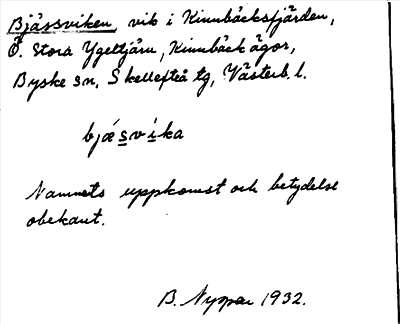 Bjässviken, vik i Kinnbäcksfjärden,
Ö. Stora Ygeltjärn, Kinnbäck ägor,
Byske sn, Skellefteå tg, Västerb. l.
bjǽsvíka
Namnets uppkomst och betydelse
obekant.
B. 1932.